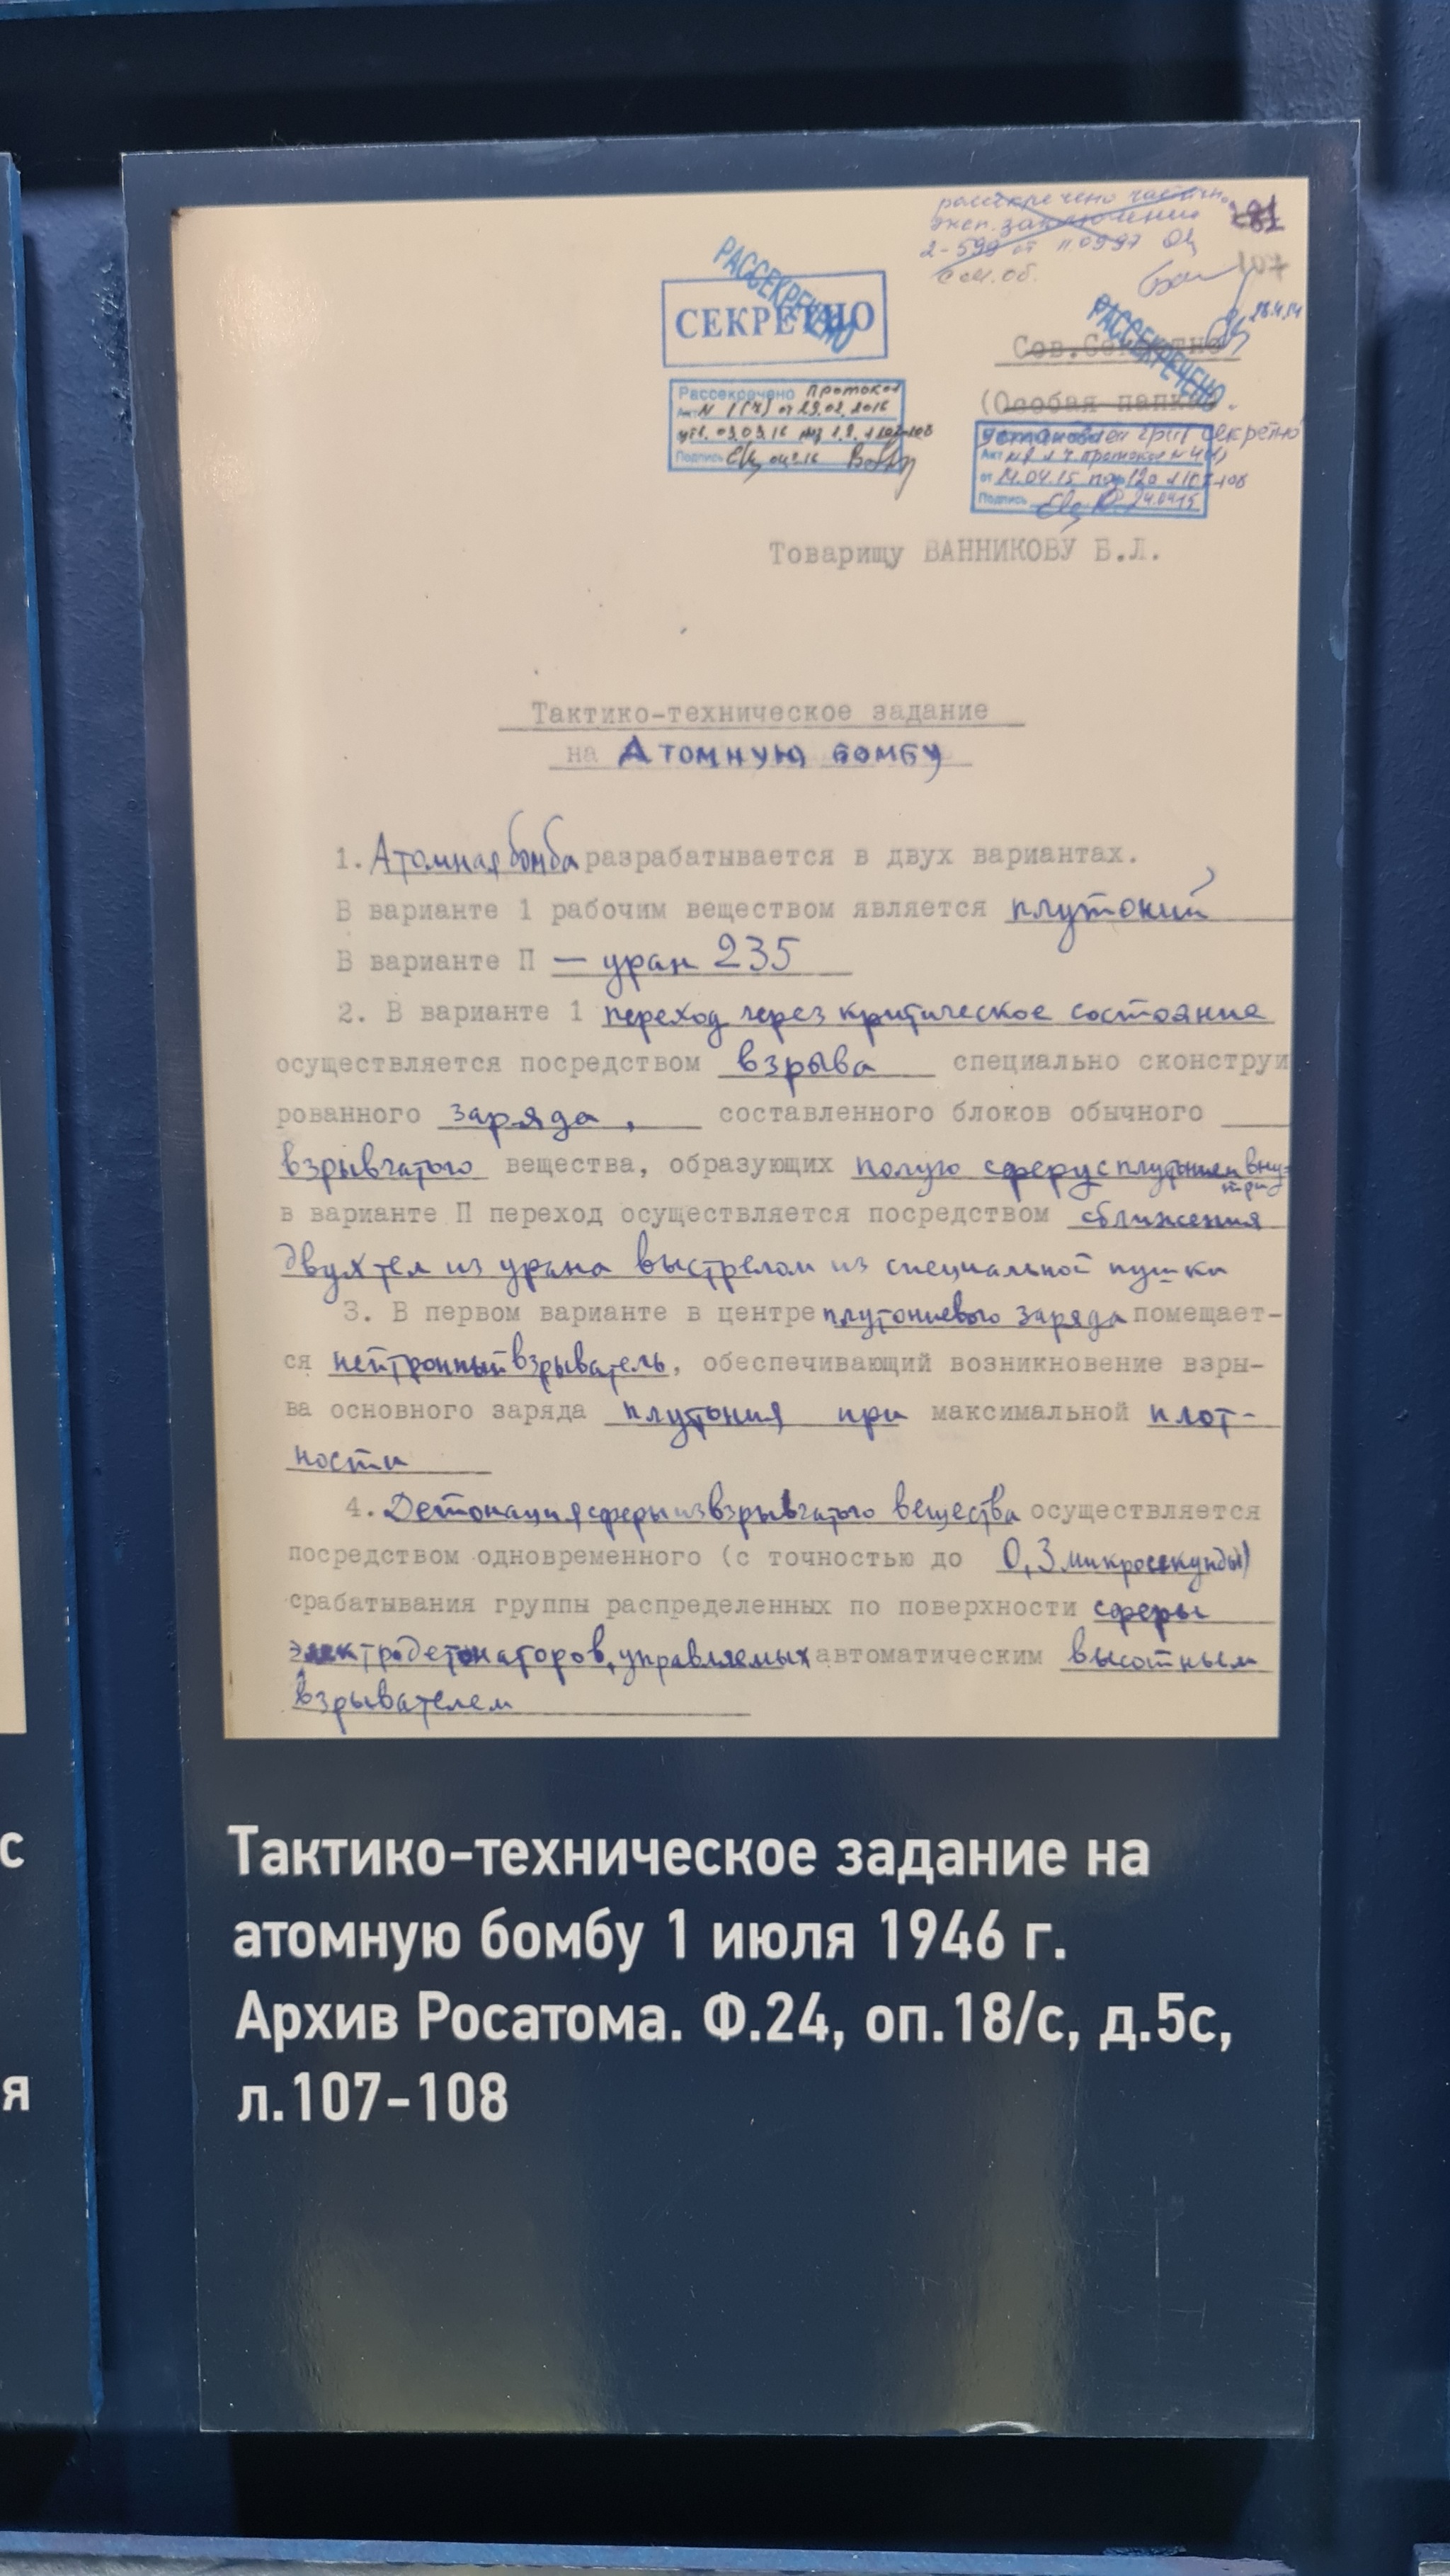 рассекречено частичн.
эксп. заключение
2-599 от 11.09.97
181
107
РАССЕКРЕЧЕНО
СЕКРЕТНО
РАССЕКРЕЧЕНО
Сов.Секретно
(Особая папка).
Рассекречено Протокол
Акт N 1(4) от 29.02.2016
Подпись
установлен гриф секретно
Акт
от 14.04.15
Подпись
Товарищу ВАННИКОВУ Б.Л.
Тактико-техническое задание
на Атомную бомбу
1. Атомная бомба разрабатывается в двух вариантах.
В варианте 1 рабочим веществом является плутоний
В варианте П — уран 235
2. В варианте 1 переход через критическое состояние
осуществляется посредством взрыва специально сконструи
рованного заряда, составленного блоков обычного
взрывчатого вещества, образующих полую сферу с плутонием внутри
в варианте П переход осуществляется посредством сближения
двух тел из урана выстрелом из специальной пушки
3. В первом варианте в центре плутониевого заряда помещает-
ся нейтронный взрыватель, обеспечивающий возникновение взры-
ва основного заряда плутония при максимальной плот-
ности
4. Детонация сферы из взрывчатого вещества осуществляется
посредством одновременного (с точностью до 0,3 микросекунды)
срабатывания группы распределенных по поверхности сферы
электродетонаторов, управляемых автоматическим высотным
взрывателем
Тактико-техническое задание на
атомную бомбу 1 июля 1946 г.
Архив Росатома. Ф.24, оп.18/с, д.5с,
л.107-108
с
я